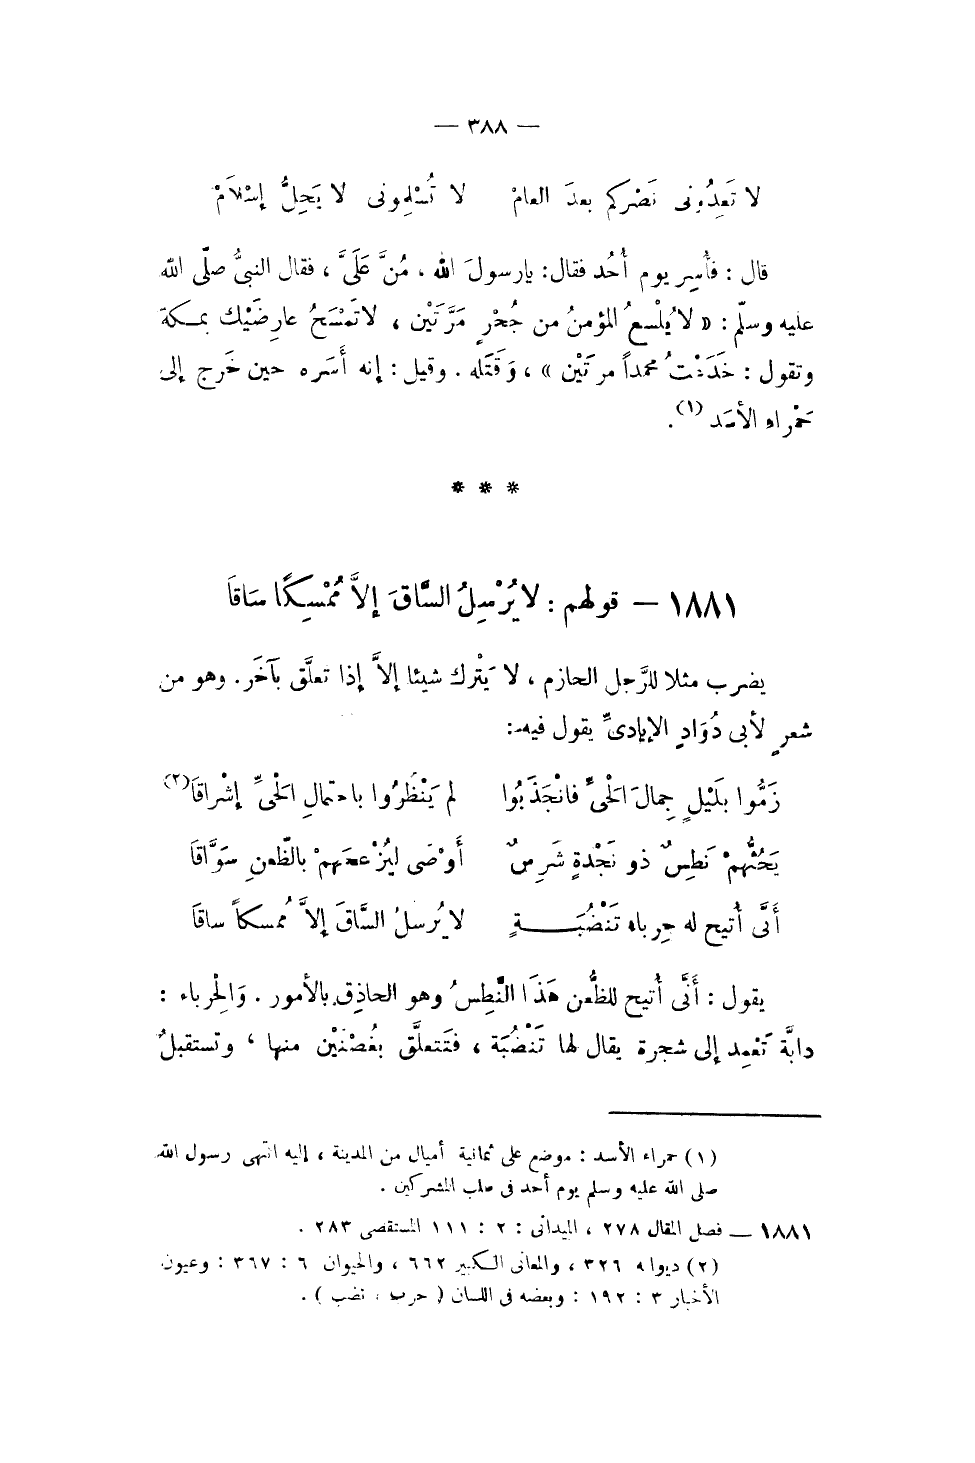 — ٣٨٨ —
لا تَعِدُونى نَصْركم بعدَ العامْ لا تُسْلِمونى لا يَحِلُّ إسْلاَمْ
قال : فأُسِر يوم أُحُد فقال: يارسولَ الله ، مُنَّ عَلَىَّ ، فقال النبىُّ صلّى الله
عليه وسلّم : « لا يُلْسعُ المؤمنُ من جُحْرٍ مَرَّتَيْن ، لاتَمْسَحُ عارِضَيْك بمـكة
وتقول : خَدَعْتُ محمداً مرتَيْن » ، وَقَتَله . وقيل : إنه أَسَره حين خَرج إلى
حَمْراءِ الأسَد (١).
* * *
١٨٨١ — قولهم : لا يُرْسِلُ السَّاقَ إلاَّ مُمْسِكًا سَاقَا
يضرب مثلا للرَّجل الحازم ، لا يَتْرك شيئا إلاَّ إذا تعلَّق بآخَر. وهو من
شعرٍ لأبى دُوَادٍ الإيادىِّ يقول فيه:
زَمُّوا بلَيْلٍ جِمالَ الحَىِّ فانْجَذَبُوا لم يَنْظُرُوا باحتمالِ الحَىِّ إشْراقَا(٢)
يَحُثُّهمْ نَطِسٌ ذو نَجْدةٍ شَرِسٌ أَوْصَى ليُزْعجَهمْ بالظّعنِ سَوَّاقَا
أَنَّى أُتيح له حِرباء تَنْضُبَـــةٍ لا يُرسلُ السَّاقَ إلاَّ مُمسكاً ساقَا
يقول : أَنَّى أُتيح للظُّعن هَذَا النَّطِسُ وهو الحاذِق بالأمور . وَالحْرباء :
دابَّة تَعْمِد إلى شجرة يقال لها تَنْضُبَة ، فَتَتعلَّق بغُصْنَيْن منها ، وتستقبلُ
(١) حمراء الأسد : موضع على ثمانية أميال من المدينة ، إليه انتهى رسول الله
صلى الله عليه وسلم يوم أحد فى طلب المشركين .
١٨٨١ — فصل المقال ٢٧٨ ، الميدانى : ٢ : ١١١ المستقصى ٢٨٣ .
(٢) ديوانه ٣٢٦ ، والمعانى الكبير ٦٦٢ ، والحيوان ٦ : ٣٦٧ : وعيون
الأخبار ٣ : ١٩٢ : وبعضه فى اللسان ( حرب ، نضب ) .